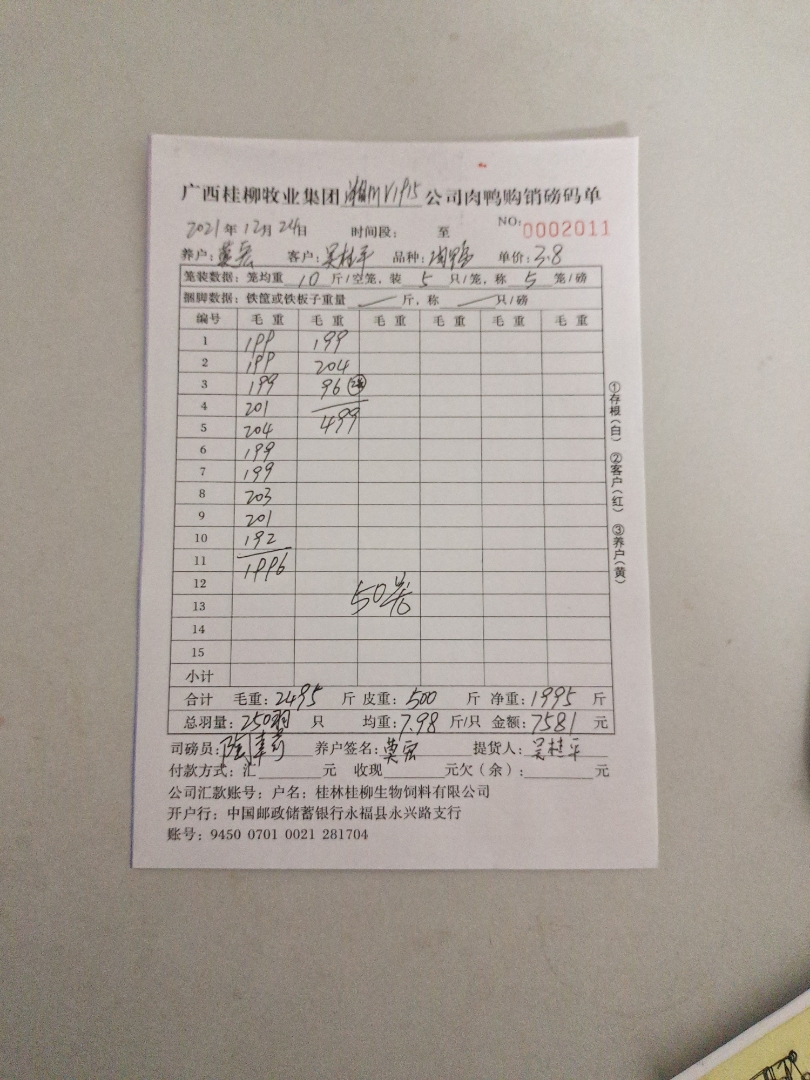 广西桂柳牧业集团 公司肉鸭购销磅码单
2021年12月24日 时间段: 至 NO: 0002011
养户: 客户:吴桂平 品种:肉鸭 单价:3.8
笼装数据:笼均重 10 斤/空笼,装 5 只/笼,称 5 笼/磅
捆脚数据:铁筐或铁板子重量 斤,称 只/磅
编号 毛重 毛重 毛重 毛重 毛重 毛重
1 199 199
2 199 204
3 199 96
4 201
5 204 499
6 199
7 199
8 203
9 201
10 192
11 1996
12
13 50笼
14
15
小计
合计 毛重:2495 斤 皮重:500 斤 净重:1995 斤
总羽量:250羽 只 均重:7.98 斤/只 金额:7581 元
司磅员: 养户签名: 提货人:吴桂平
付款方式:汇 元 收现 元欠(余): 元
公司汇款账号:户名:桂林桂柳生物饲料有限公司
开户行:中国邮政储蓄银行永福县永兴路支行
账号:9450 0701 0021 281704
①存根(白) ②客户(红) ③养户(黄)